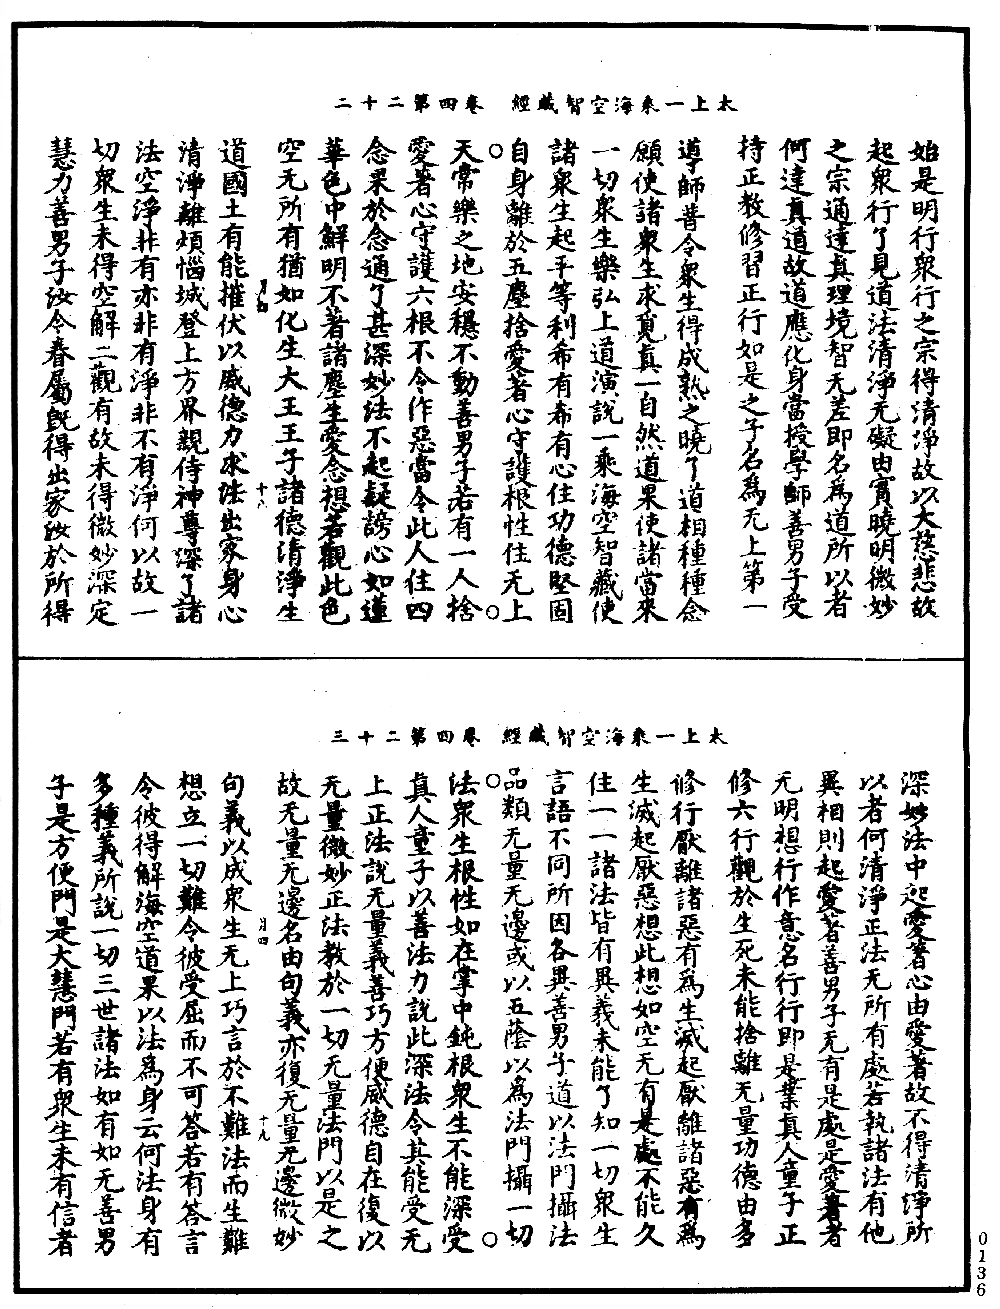 太上一乘海空智藏經　卷四第二十二
始是明行衆行之宗得清淨故以大慈悲故
起衆行了見道法清淨无礙由實曉明微妙
之宗通達真理境智无差即名為道所以者
何達真道故道應化身當授學師善男子受
持正教修習正行如是之子名為无上第一
導師普令衆生得成熟之曉了道相種種念
願使諸衆生求覓真一自然道果使諸當來
一切衆生樂弘上道演說一乘海空智藏使
諸衆生起平等利希有希有心住功德堅固
自身離於五塵捨愛著心守護根性住无上
天常樂之地安穩不動善男子若有一人捨
愛著心守護六根不令作惡當令此人住四
念果於念念通了甚深妙法不起疑謗心如蓮
華色中解明不著諸塵生愛念想若觀此色
空无所有猶如化生大王王子諸德清淨生
月四　十八
道國土有能摧伏以威德力求法出家身心
清淨離煩惱城登上方界親侍神尊深了諸
法空淨非有亦非有淨非不有淨何以故一
切衆生未得空解二觀有故未得微妙深定
慧力善男子汝令眷屬既得出家汝於所得
太上一乘海空智藏經　卷四第二十三
深妙法中起愛著心由愛著故不得清淨所
以者何清淨正法无所有處若執諸法有他
異相則起愛著善男子无有是處是愛著者
无明想行作意名行行即是業真人童子正
修六行觀於生死未能捨離无量功德由多
修行厭離諸惡有為生滅起厭離諸惡有為
生滅起厭惡想此想如空无有是處不能久
住一一諸法皆有異義未能了知一切衆生
言語不同所因各異善男子道以法門攝法
品類无量无邊或以五蔭以為法門攝一切
法衆生根性如在掌中鈍根衆生不能深受
真人童子以善法力說此深法令其能受无
上正法說无量義善巧方便威德自在復以
无量微妙正法教於一切无量法門以是之
故无量无邊名由句義亦復无量无邊微妙
月四　十九
句義以成衆生无上巧言於不難法而生難
想立一切難令彼受屈而不可答若有答言
令彼得解海空道果以法為身云何法身有
多種義所說一切三世諸法如有如无善男
子是方便門是大慧門若有衆生未有信者
0136